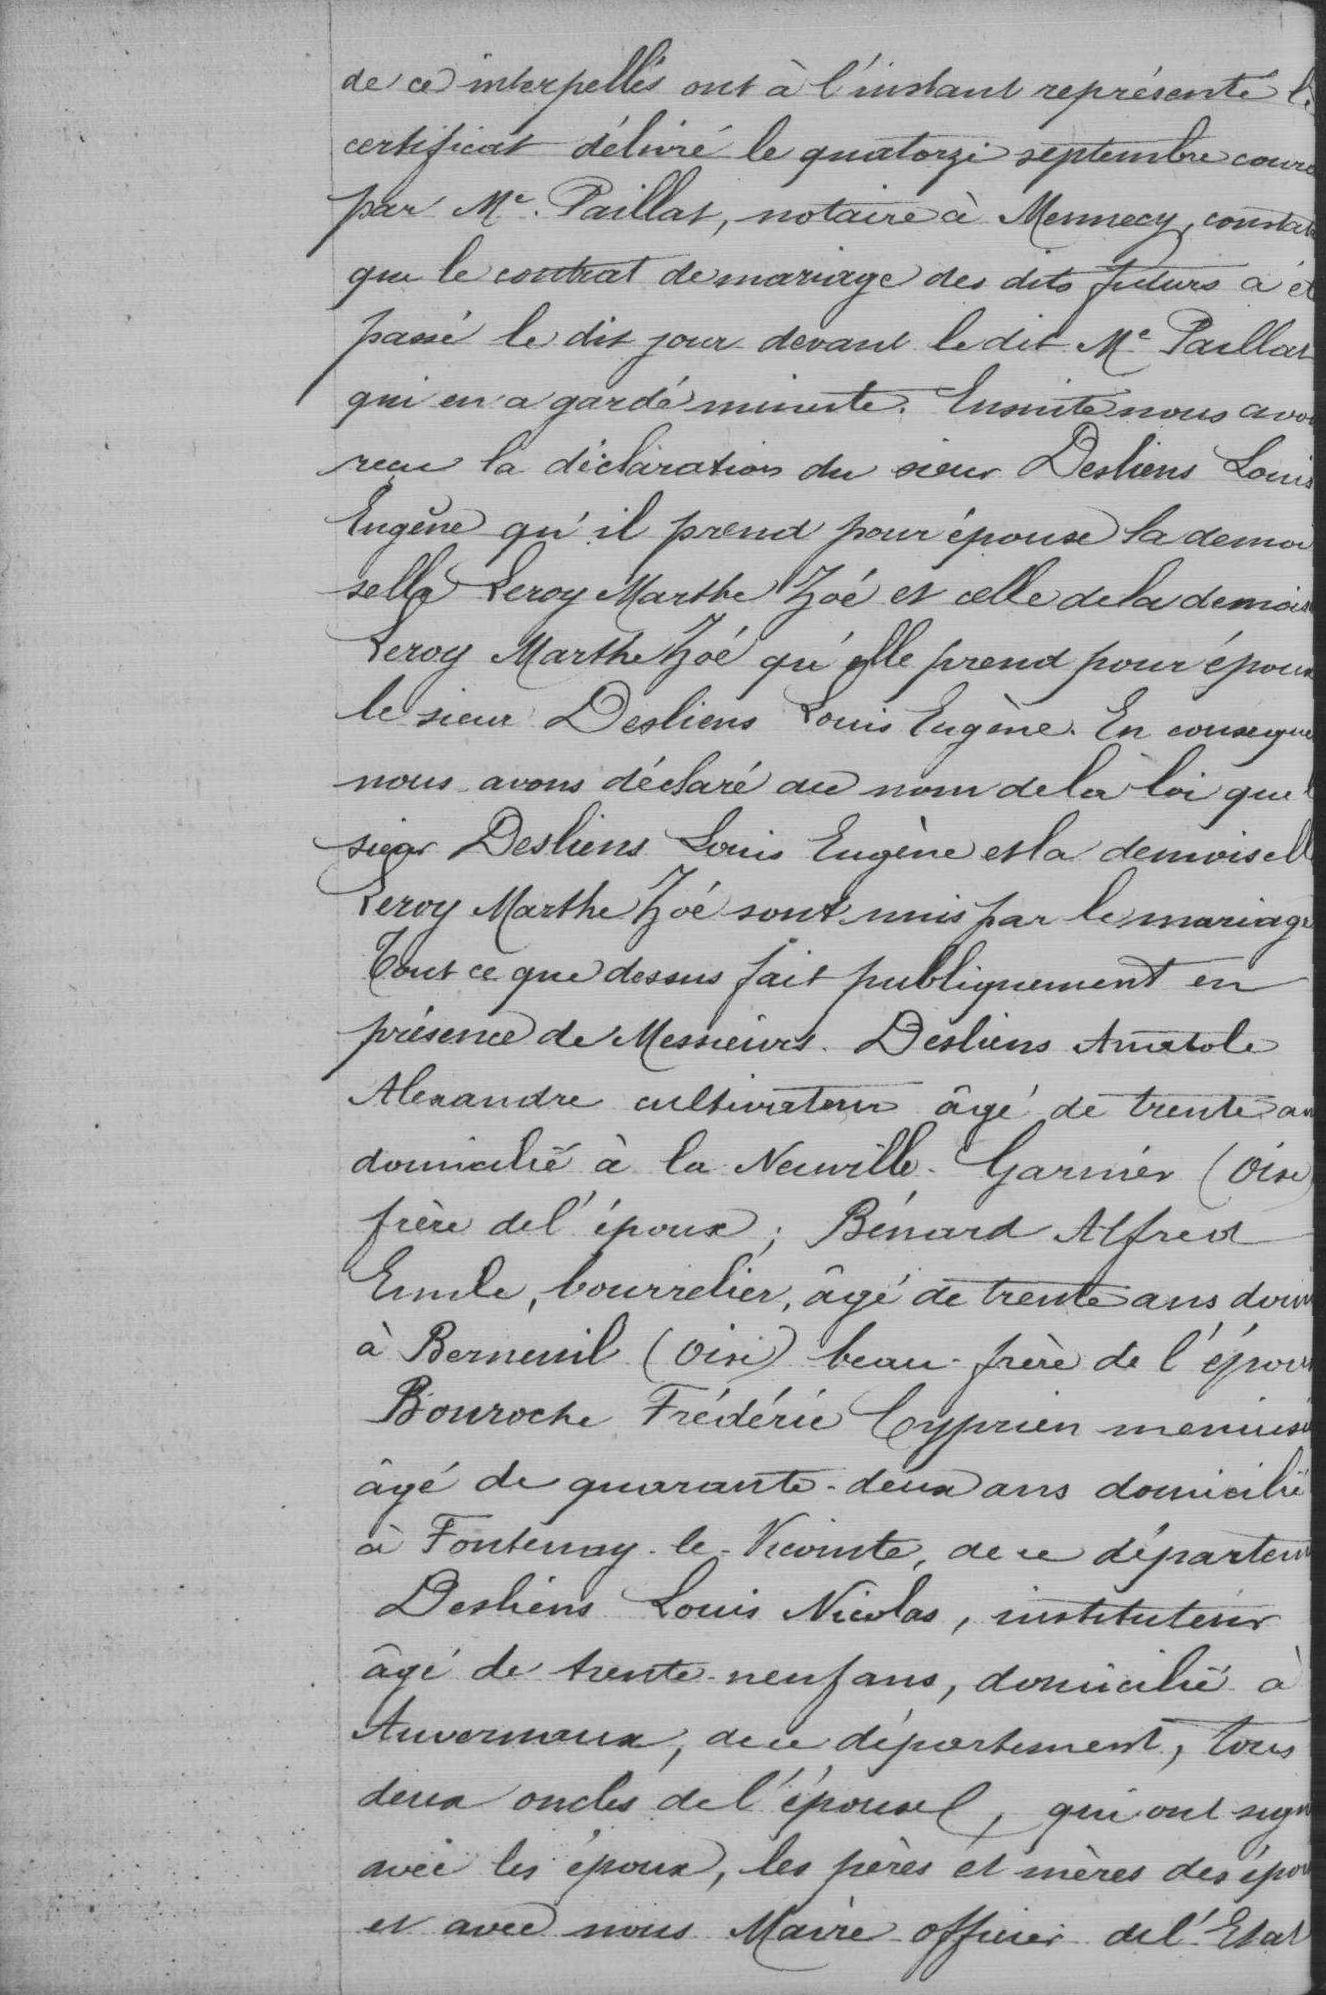 de ce interpellés ont à l'instant représenté le
certificat délivré le quatorze septembre coura
par Me. Paillat, notaire à Mennecy, constata
que le contrat de mariage des dits futurs a ét
passé le dit jour devant le dit Me Paillat
qui en a gardé minute. Ensuite nous avon
reçu la déclaration du sieur Desliens Louis
Eugène qu'il prend pour épouse la demoi
selle Leroy Marthe Zoé et celle de la demois
Leroy Marthe Zoé qu'elle prend pour époux
le sieur Desliens Louis Eugène. En conséque
nous avons déclaré au nom de la loi que l
sieur Desliens Louis Eugène et la demoisell
Leroy Marthe Zoé sont unis par le mariage
Tout ce que dessus fait publiquement en
présence de Messieurs. Desliens Anatole
Alexandre cultivateur âgé de trente an
domicilié à la Neuville-Garnier (Oise)
frère de l'époux; Bénard Alfred
Emile, bourrelier, âgé de trente ans dom
à Berneuil (Oise) beau-frère de l'épou
Bouroche Frédéric Cyprien menuisi
âgé de quarante-deux ans domicilié
à Fontenay-le-Vicomte, de ce départem
Desliens Louis Nicolas, instituteur
âgé de trente-neuf ans, domicilié à
Auvernaux, de ce département, tous
deux oncles de l'épouse, qui ont sign
avec les époux, les pères et mères des épou
et avec nous Maire officier de l'Etat